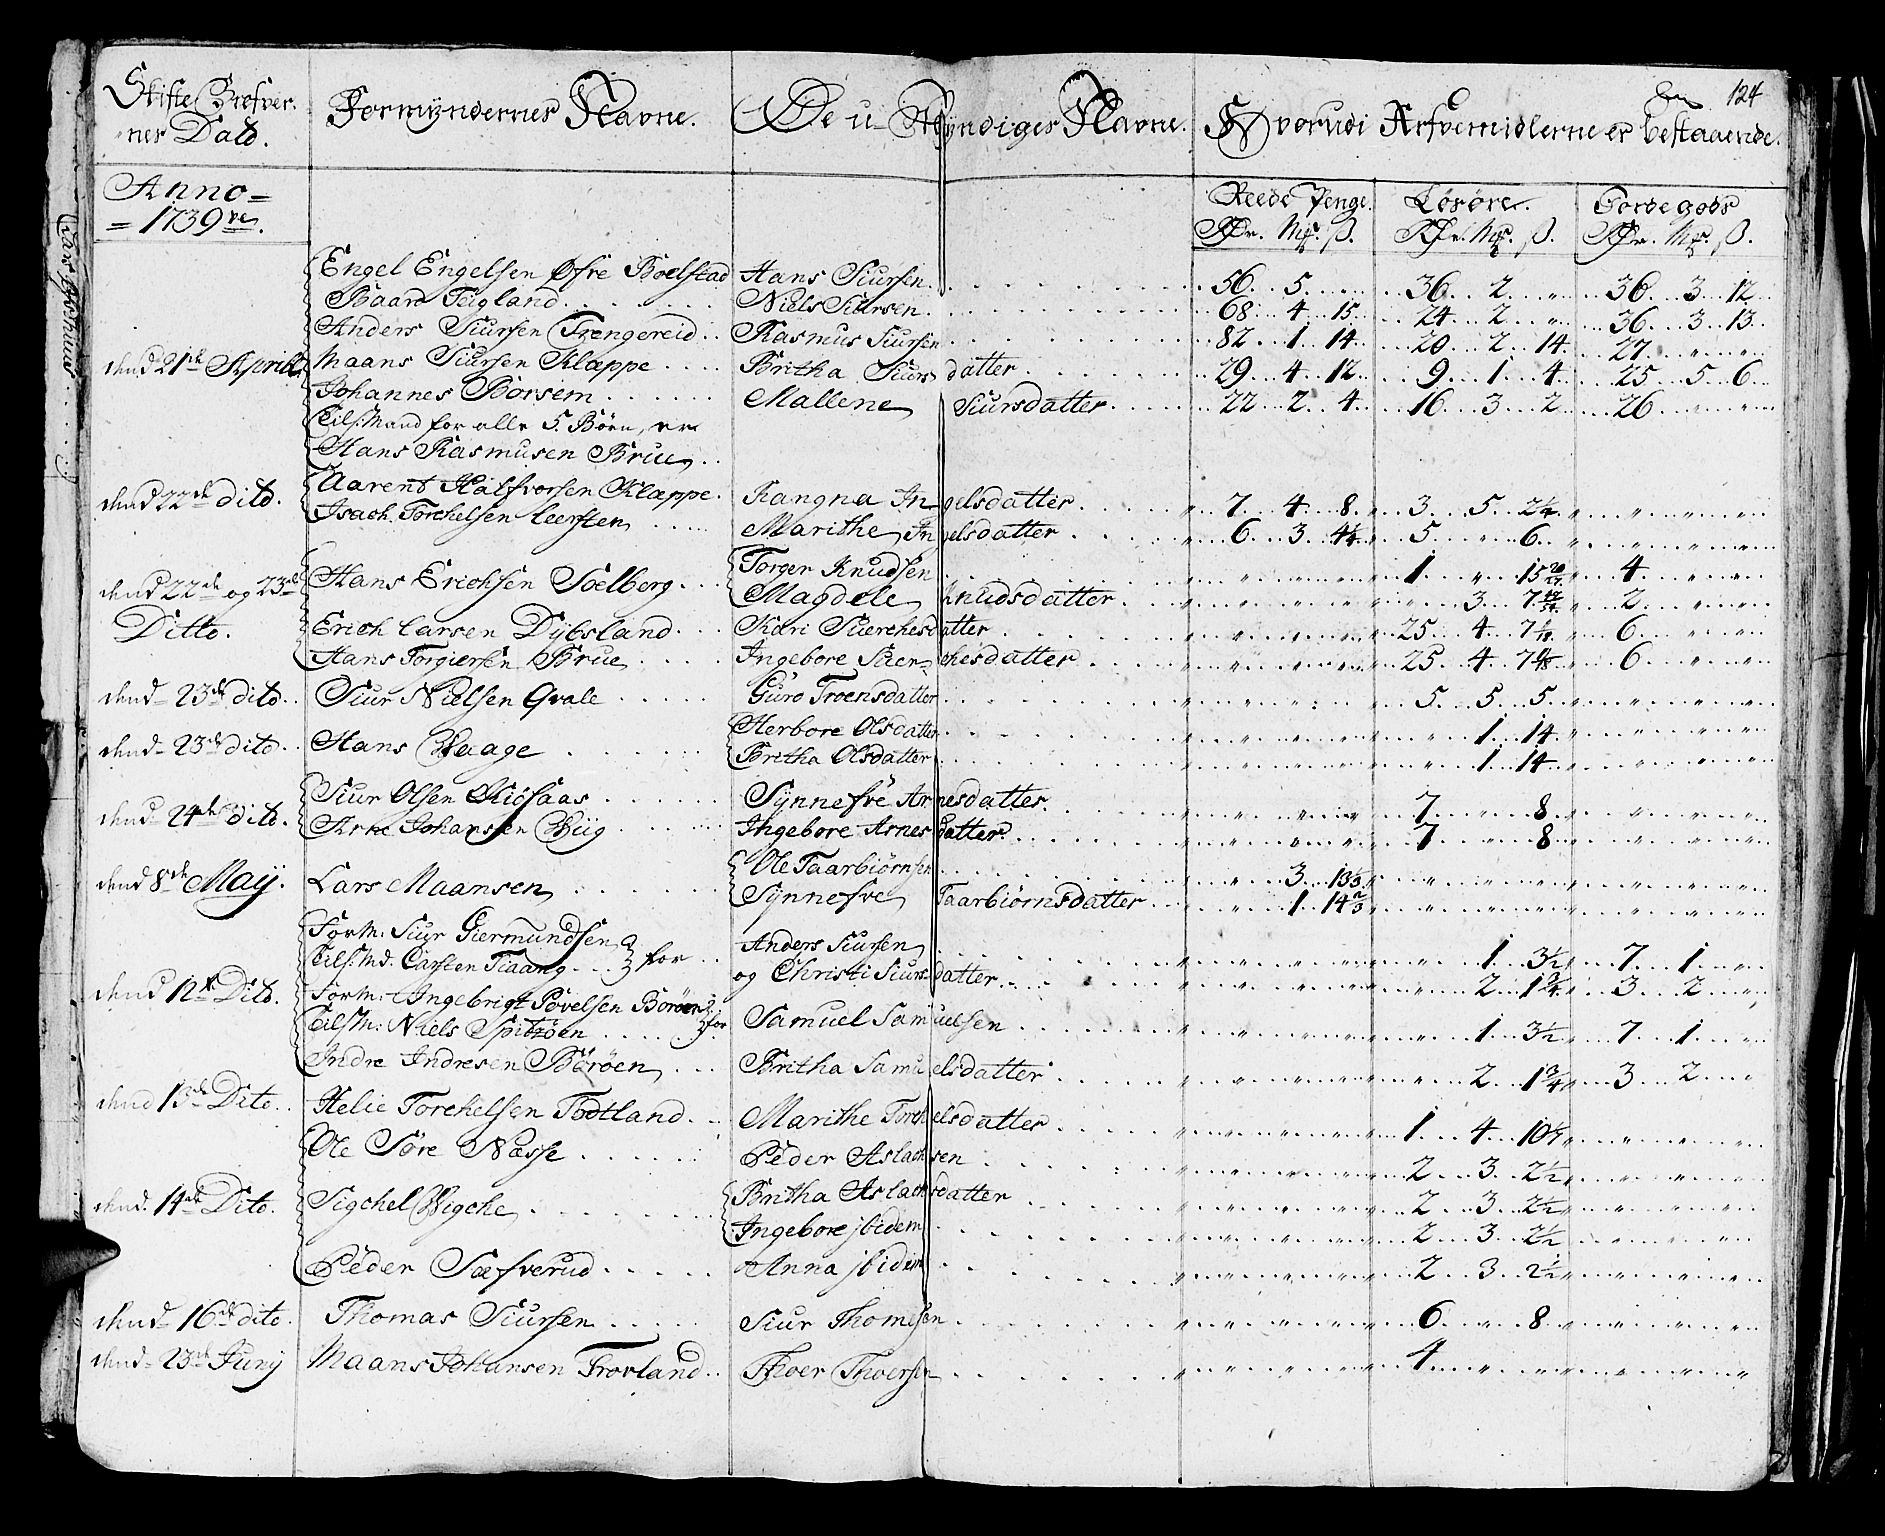 124
Skifte Brefver- Formyndernes Navne. De u-Myndiges Navne. Hvorudi Arfvemidlerne er bestaaende.
nes Dato.
Anno= Reede Penge. Løsøre. Jordegods
=1739 ve. Rdr. Mk. ß. Rdr. Mk. ß. Rdr. Mk. ß.
Engel Engelsen Øfre Boelstad Hans Siursen 56 5 " 36 2 " 36 3 12
Baard Teigland Niels Siursen 68 4 15 24 2 " 36 3 13
Anders Siursen Trengereid Rasmus Siursen 82 1 14 20 2 14 27 " "
dend 21de Aprill Maans Siursen Klappe Britha Siursdatter 29 4 12 9 1 4 25 5 6
Johannes Börsem Mallene Siursdatter 22 2 4 16 3 2 26 " "
Tils: Mand for alle 5. Börn, er
Hans Rasmusen Brue
dend 22de dito. Aarent Halfvorsen Klappe Rangna Ingelsdatter 7 4 8 3 5 2 1/4 " " "
Isach Torchelsen Leersten Marithe Ingelsdatter 6 3 4 1/4 5 " 6 " " "
dend 22de og 23de Hans Erichsen Soelberg Torger Knudsen " " " 1 " 15 4 " "
Ditto. Magdele Knudsdatter " " " " 3 7 2 " "
Erich Larsen Dybsland Kari Siverchesdatter " " " 25 4 7 6 " "
Hans Torgiersen Brue Ingebore Siverchesdatter " " " 25 4 7 6 " "
dend 23de dito Siur Nielsen Qvale Guro Troensdatter " " " 5 5 5 " " "
dend 23de dito Hans Waage Herbore Olsdatter " " " " 1 14 " " "
Britha Olsdatter " " " " 1 14 " " "
dend 24de dito. Siur Olsen Kiösaas Synnefve Arnesdatter " " " 7 " 8 " " "
Arne Johansen Byig Ingebore Arnesdatter " " " 7 " 8 " " "
dend 8de Maij. Lars Maansen Ole Taarbiørnsen " 3 13 1/3 " " " " " "
Synnefve Taarbiørnsdatter " 1 14 2/3 " " " " " "
Form: Siur Giermundsen Anders Siursen " " " " 1 3 1/2 7 1 "
Tils: Md. Carsten Tiaang for og Christi Siursdatter " " " " 2 1 3/4 3 2 "
dend 12te Dito. Form: Ingebrigt Povelsen Boröen
Tils M: Niels Spitzöen for Samuel Samuelsen " " " " 1 3 1/2 7 1 "
Indre Indresen Böröen Britha Samuelsdatter " " " " 2 1 3/4 3 2 "
dend 13de Dito Helie Torchelsen Todtland Marithe Torchelsdatter " " " 1 4 10 " " "
Ole Söre Næsse Peder Aslachsen " " " 2 3 2 1/2 " " "
dend 14de Dito. Sigchel Wigche Britha Aslachsdatter " " " 2 3 2 1/2 " " "
Ingebore ibidem " " " 2 3 2 1/2 " " "
Peder Sæfverud Anna ibidem " " " 2 3 2 1/2 " " "
dend 16de dito. Thomas Siursen Siur Thomesen " " " 6 " 8 " " "
dend 23de Junij Maans Johansen Trovland Thoer Thoersen " " " 4 " " " " "